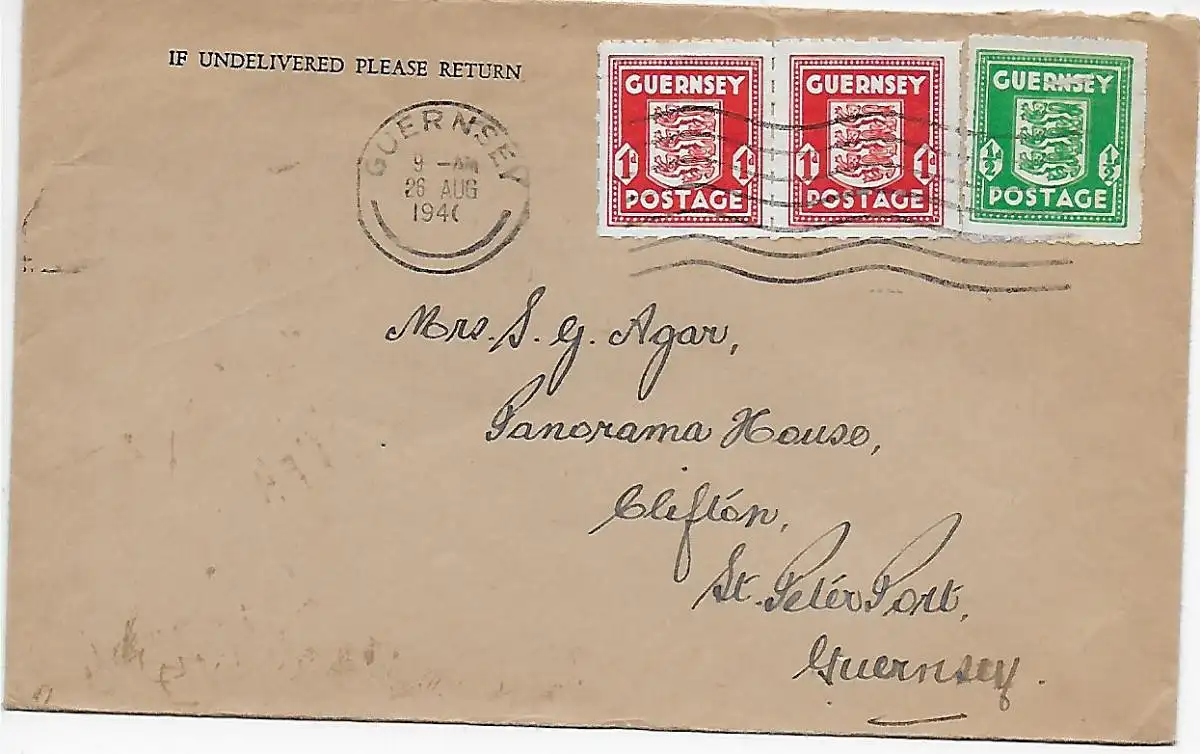 IF UNDELIVERED PLEASE RETURN
GUERNSEY
9 -AM
26 AUG
194
GUERNSEY
1D 1D
POSTAGE
GUERNSEY
1D 1D
POSTAGE
GUERNSEY
½ ½
POSTAGE
Mrs. S. G. Agar,
Panorama House,
Clifton,
St. Peter Port,
Guernsey.